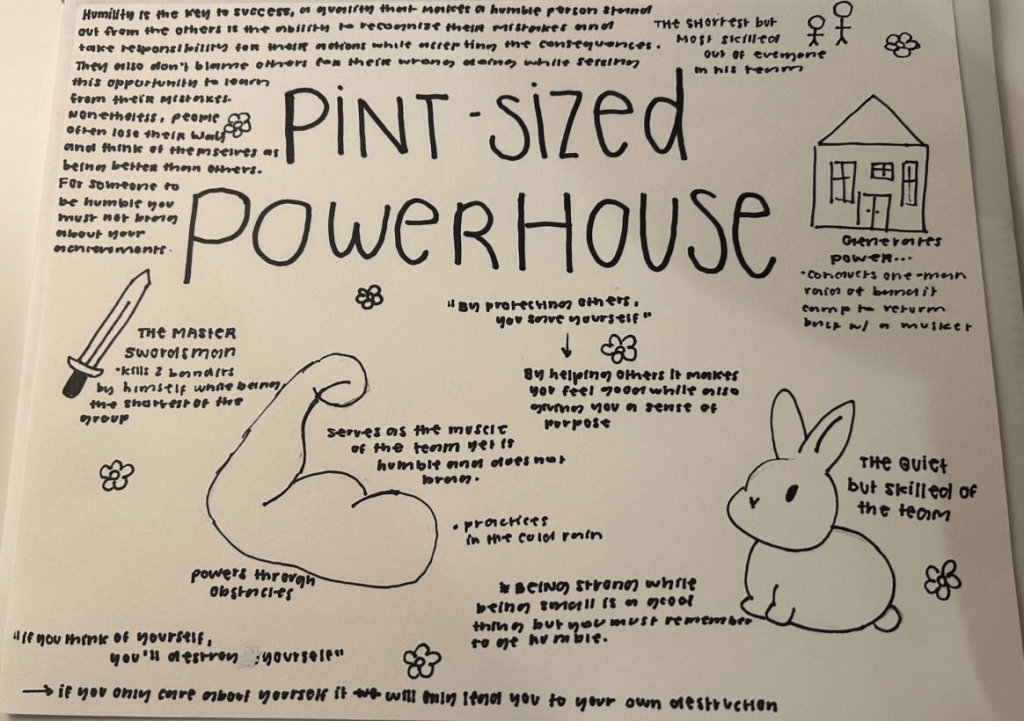 Humility is the key to success, a quality that makes a humble person stand
out from the others is the ability to recognize their mistakes and
take responsibility for their actions while accepting the consequences.
They also don't blame others for their wrong doing while seeing
this opportunity to learn
from their mistakes.
Nonetheless, people
often lose their way
and think of themselves as
being better than others.
For someone to
be humble you
must not brag
about your
achievements.
THE SHORTEST but
MOST SKILLED
out of everyone
in his team
PINT-SIZED
POWERHOUSE
Generates
power...
•conducts one-man
raid of bandit
camp to return
back w/ a musket
THE MASTER
swordsman
•kills 2 bandits
by himself while being
the shortest of the
group
"By protecting others,
you save yourself"
By helping others it makes
you feel good while also
giving you a sense of
purpose
serves as the muscle
of the team yet is
humble and does not
brag.
• practices
in the cold rain
powers through
obstacles
THE QUIET
but skilled of
the team
* BEING strong while
being small is a good
thing but you must remember
to be humble.
"if you think of yourself,
you'll destroy yourself"
→ if you only care about yourself it will only lead you to your own destruction